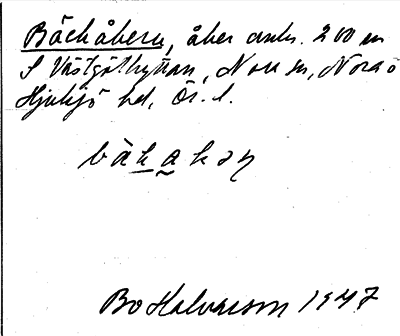 Bäckåkern, åker omkr. 200 m
S Västgöthyttan, Nora sn, Nora o
Hjulsjö hd, Ör. l.
bäkakən
Bo Halvarson 1947